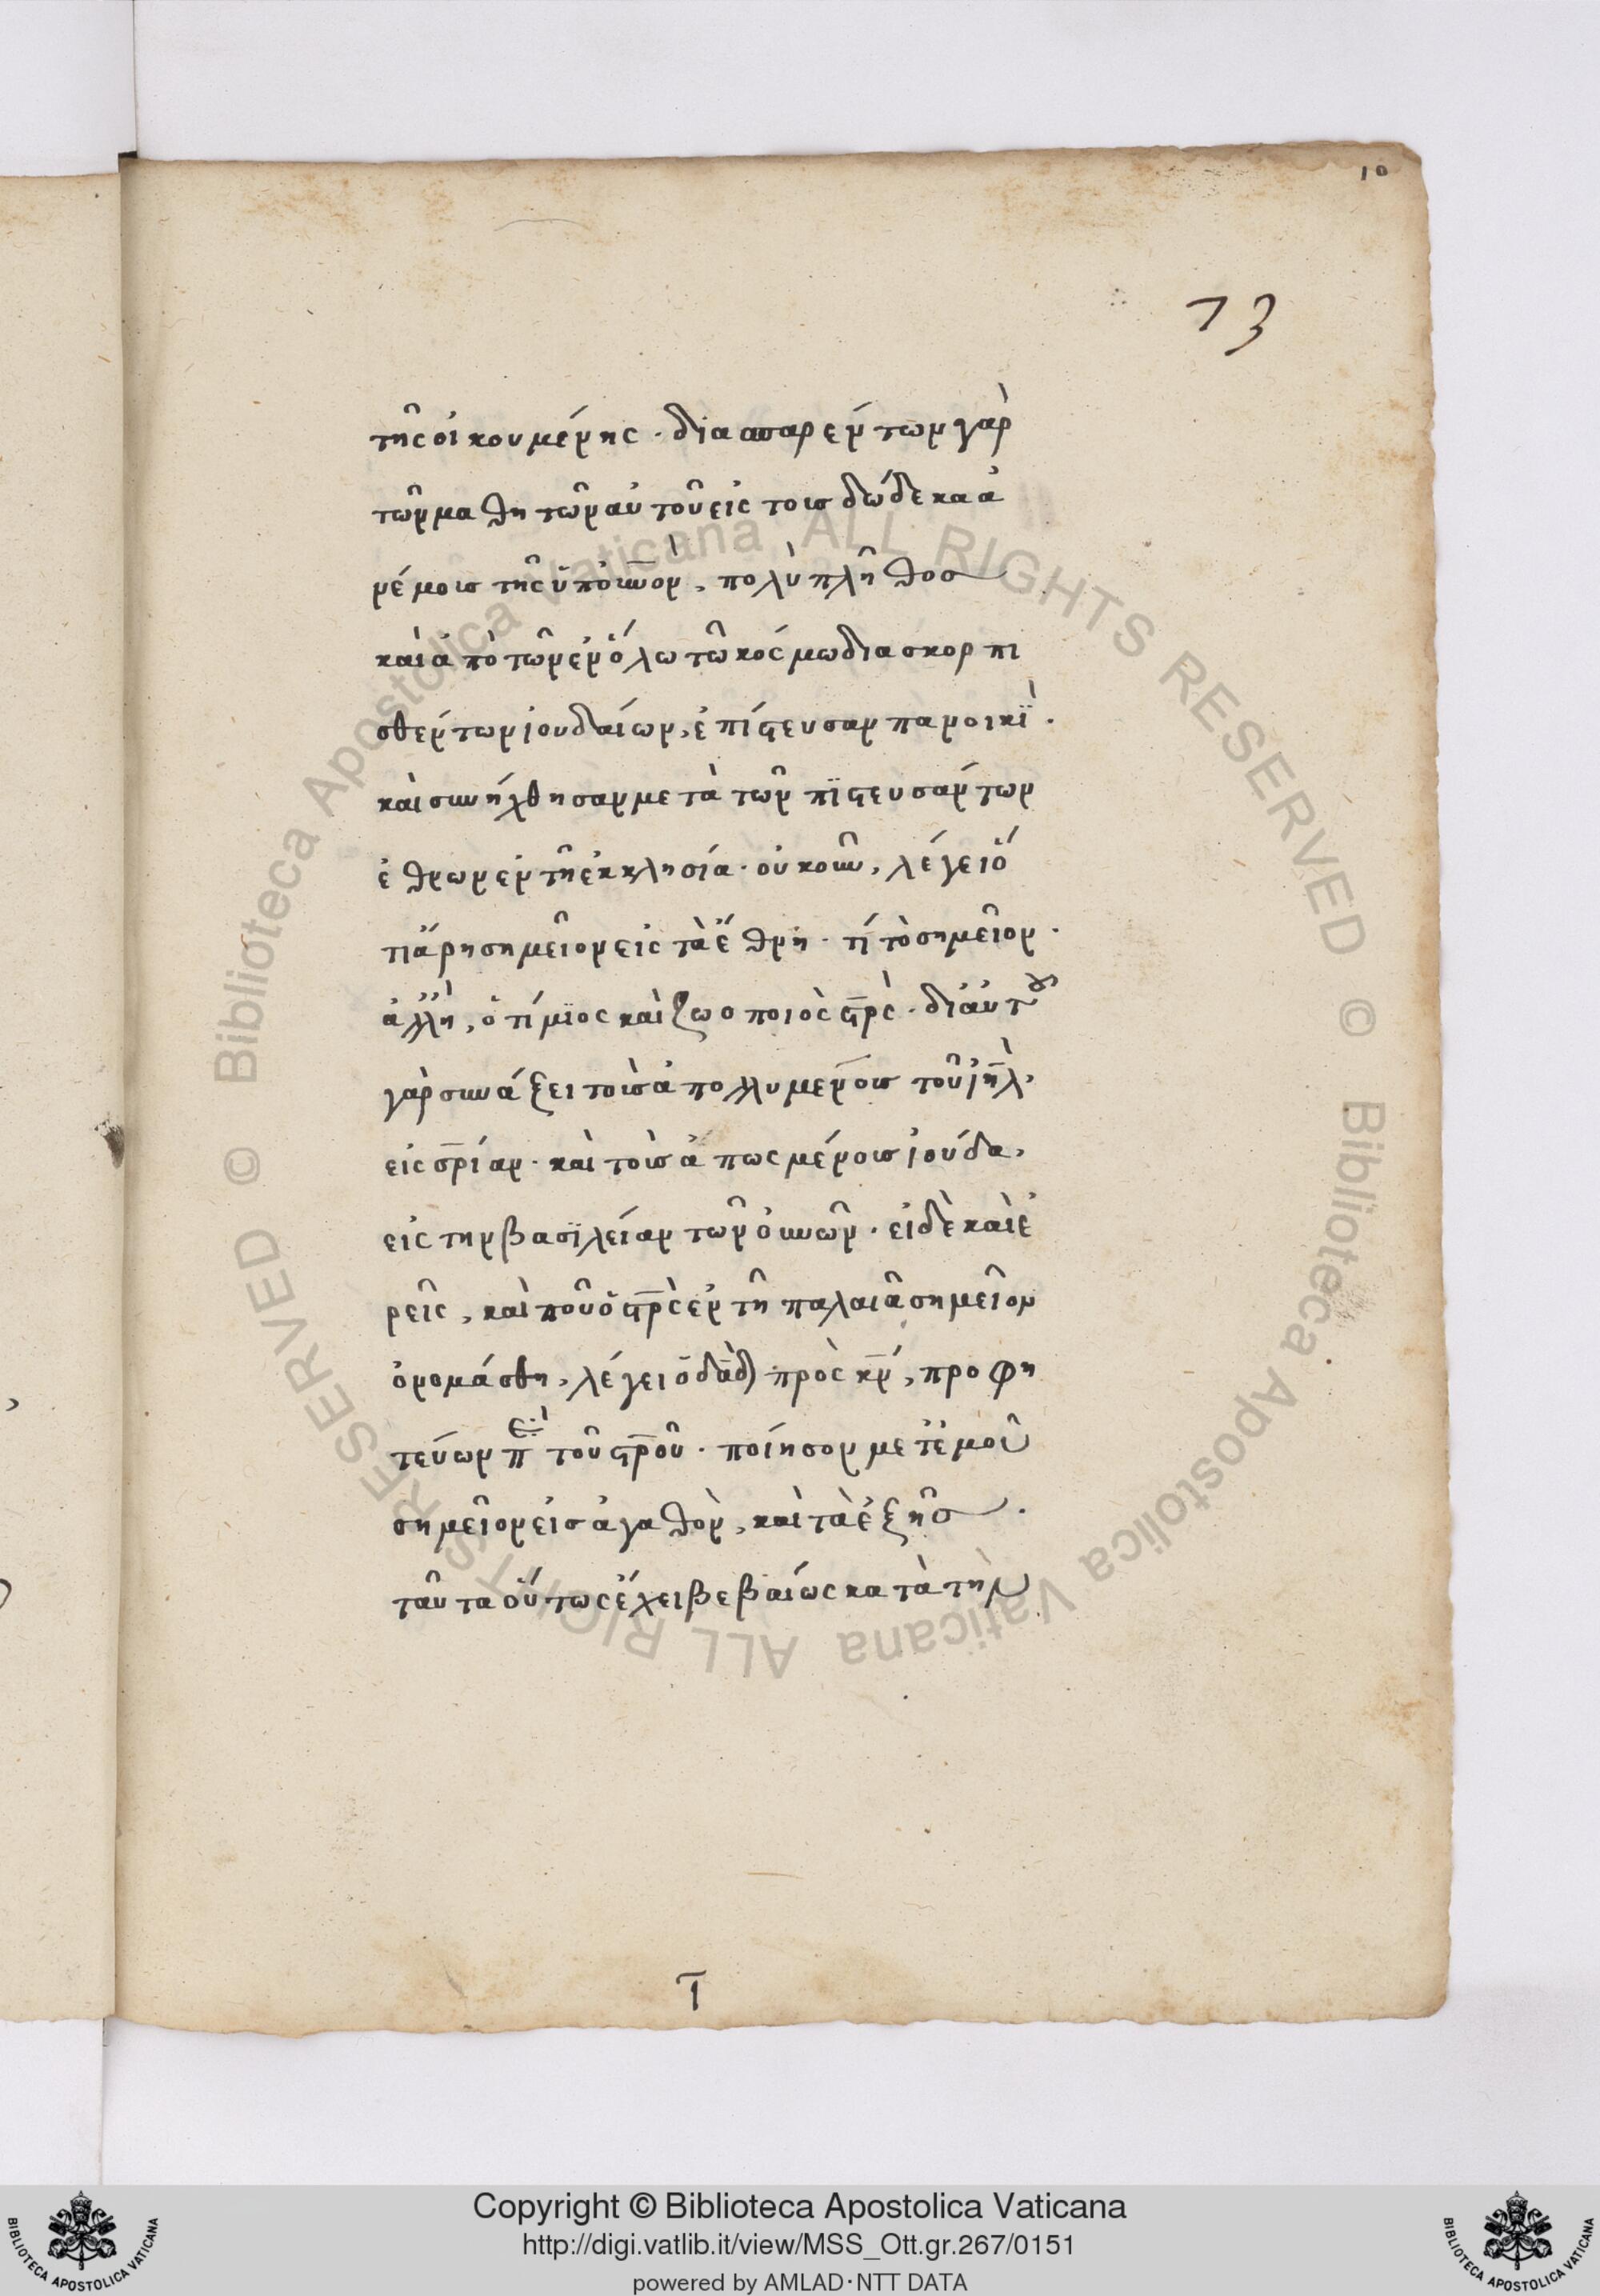 10
13
τῆς οἰκουμένης · διασπαρέντων γὰρ
τῶν μαθητῶν αὐτοῦ εἰς τοὺς δώδεκα ἀ
νέμους τῆς ὑπ' οὐνὸν, πολὺ πλῆθος
καὶ ἀπὸ τῶν ἐν ὅλω τῶ κόσμω διασκορπι
σθέντων ἰουδαίων, ἐπίστευσαν πανοικὶ ·
καὶ συνήχθησαν μετὰ τῶν πιστευσάντων
ἐθνων ἐν τῆ ἐκκλησία · οὐκοῦν, λέγει ὁ
τι ἄρη σημεῖον εἰς τὰ ἔθνη · τί τὸ σημεῖον ·
ἀλλ' ἢ, ὁ τίμιος καὶ ζωοποιὸς στρὸς · δι' αὐτοῦ
γὰρ συνάξει τοὺς ἀπολλυμένους τοῦ ἰηλ,
εἰς σρίαν · καὶ τοὺς ἀπωσμένους ἰούδα,
εἰς τὴν βασιλείαν τῶν οὐνῶν · εἰ δὲ καὶ ἐ
ρεῖς, καὶ ποῦ ὁ στρὸς ἐν τῆ παλαιᾶ σημεῖον
ὀνομάσθη, λέγει ὁ δαδ πρὸς κν, προφη
τεύων περὶ τοῦ στροῦ · ποίησον μετ' ἐμοῦ
σημεῖον εἰς ἀγαθὸν, καὶ τὰ ἑξῆς ·
ταῦτα οὕτως ἔχει βεβαίως κατὰ τὴν
ι
© Biblioteca Apostolica Vaticana ALL RIGHTS RESERVED © Biblioteca Apostolica Vaticana ALL RIGHTS RESERVED
Copyright © Biblioteca Apostolica Vaticana
http://digi.vatlib.it/view/MSS_Ott.gr.267/0151
powered by AMLAD·NTT DATA
BIBLIOTECA APOSTOLICA VATICANA
BIBLIOTECA APOSTOLICA VATICANA